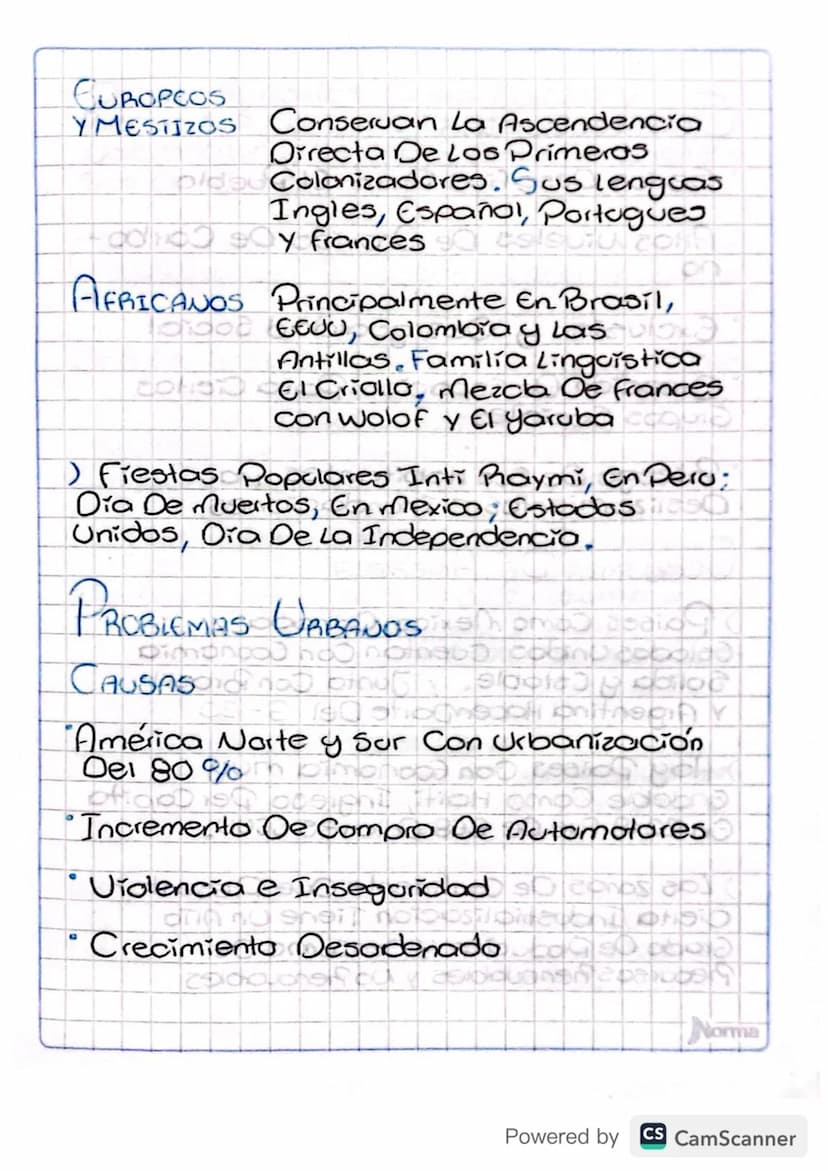 Europeos
y Mestizos Conservan La Ascendencia
Directa De Los Primeros
Colonizadores. Sus lenguas
Ingles, Español, Portugues
y frances
Africanos Principalmente En Brasil,
EEUU, Colombia y Las
Antillas. Familia Lingüistica
El Criollo, Mezcla De frances
con Wolof y El Yaruba
) Fiestas Populares Inti Raymi, En Peru;
Día De Muertos, En Mexico; Estados
Unidos, Día De La Independencia.
Problemas Urbanos
Causas
• América Norte y Sur Con Urbanización
Del 80 %
• Incremento De Compra De Automotores
• Violencia e Inseguridad
• Crecimiento Desodenado
Norma
Powered by CS CamScanner